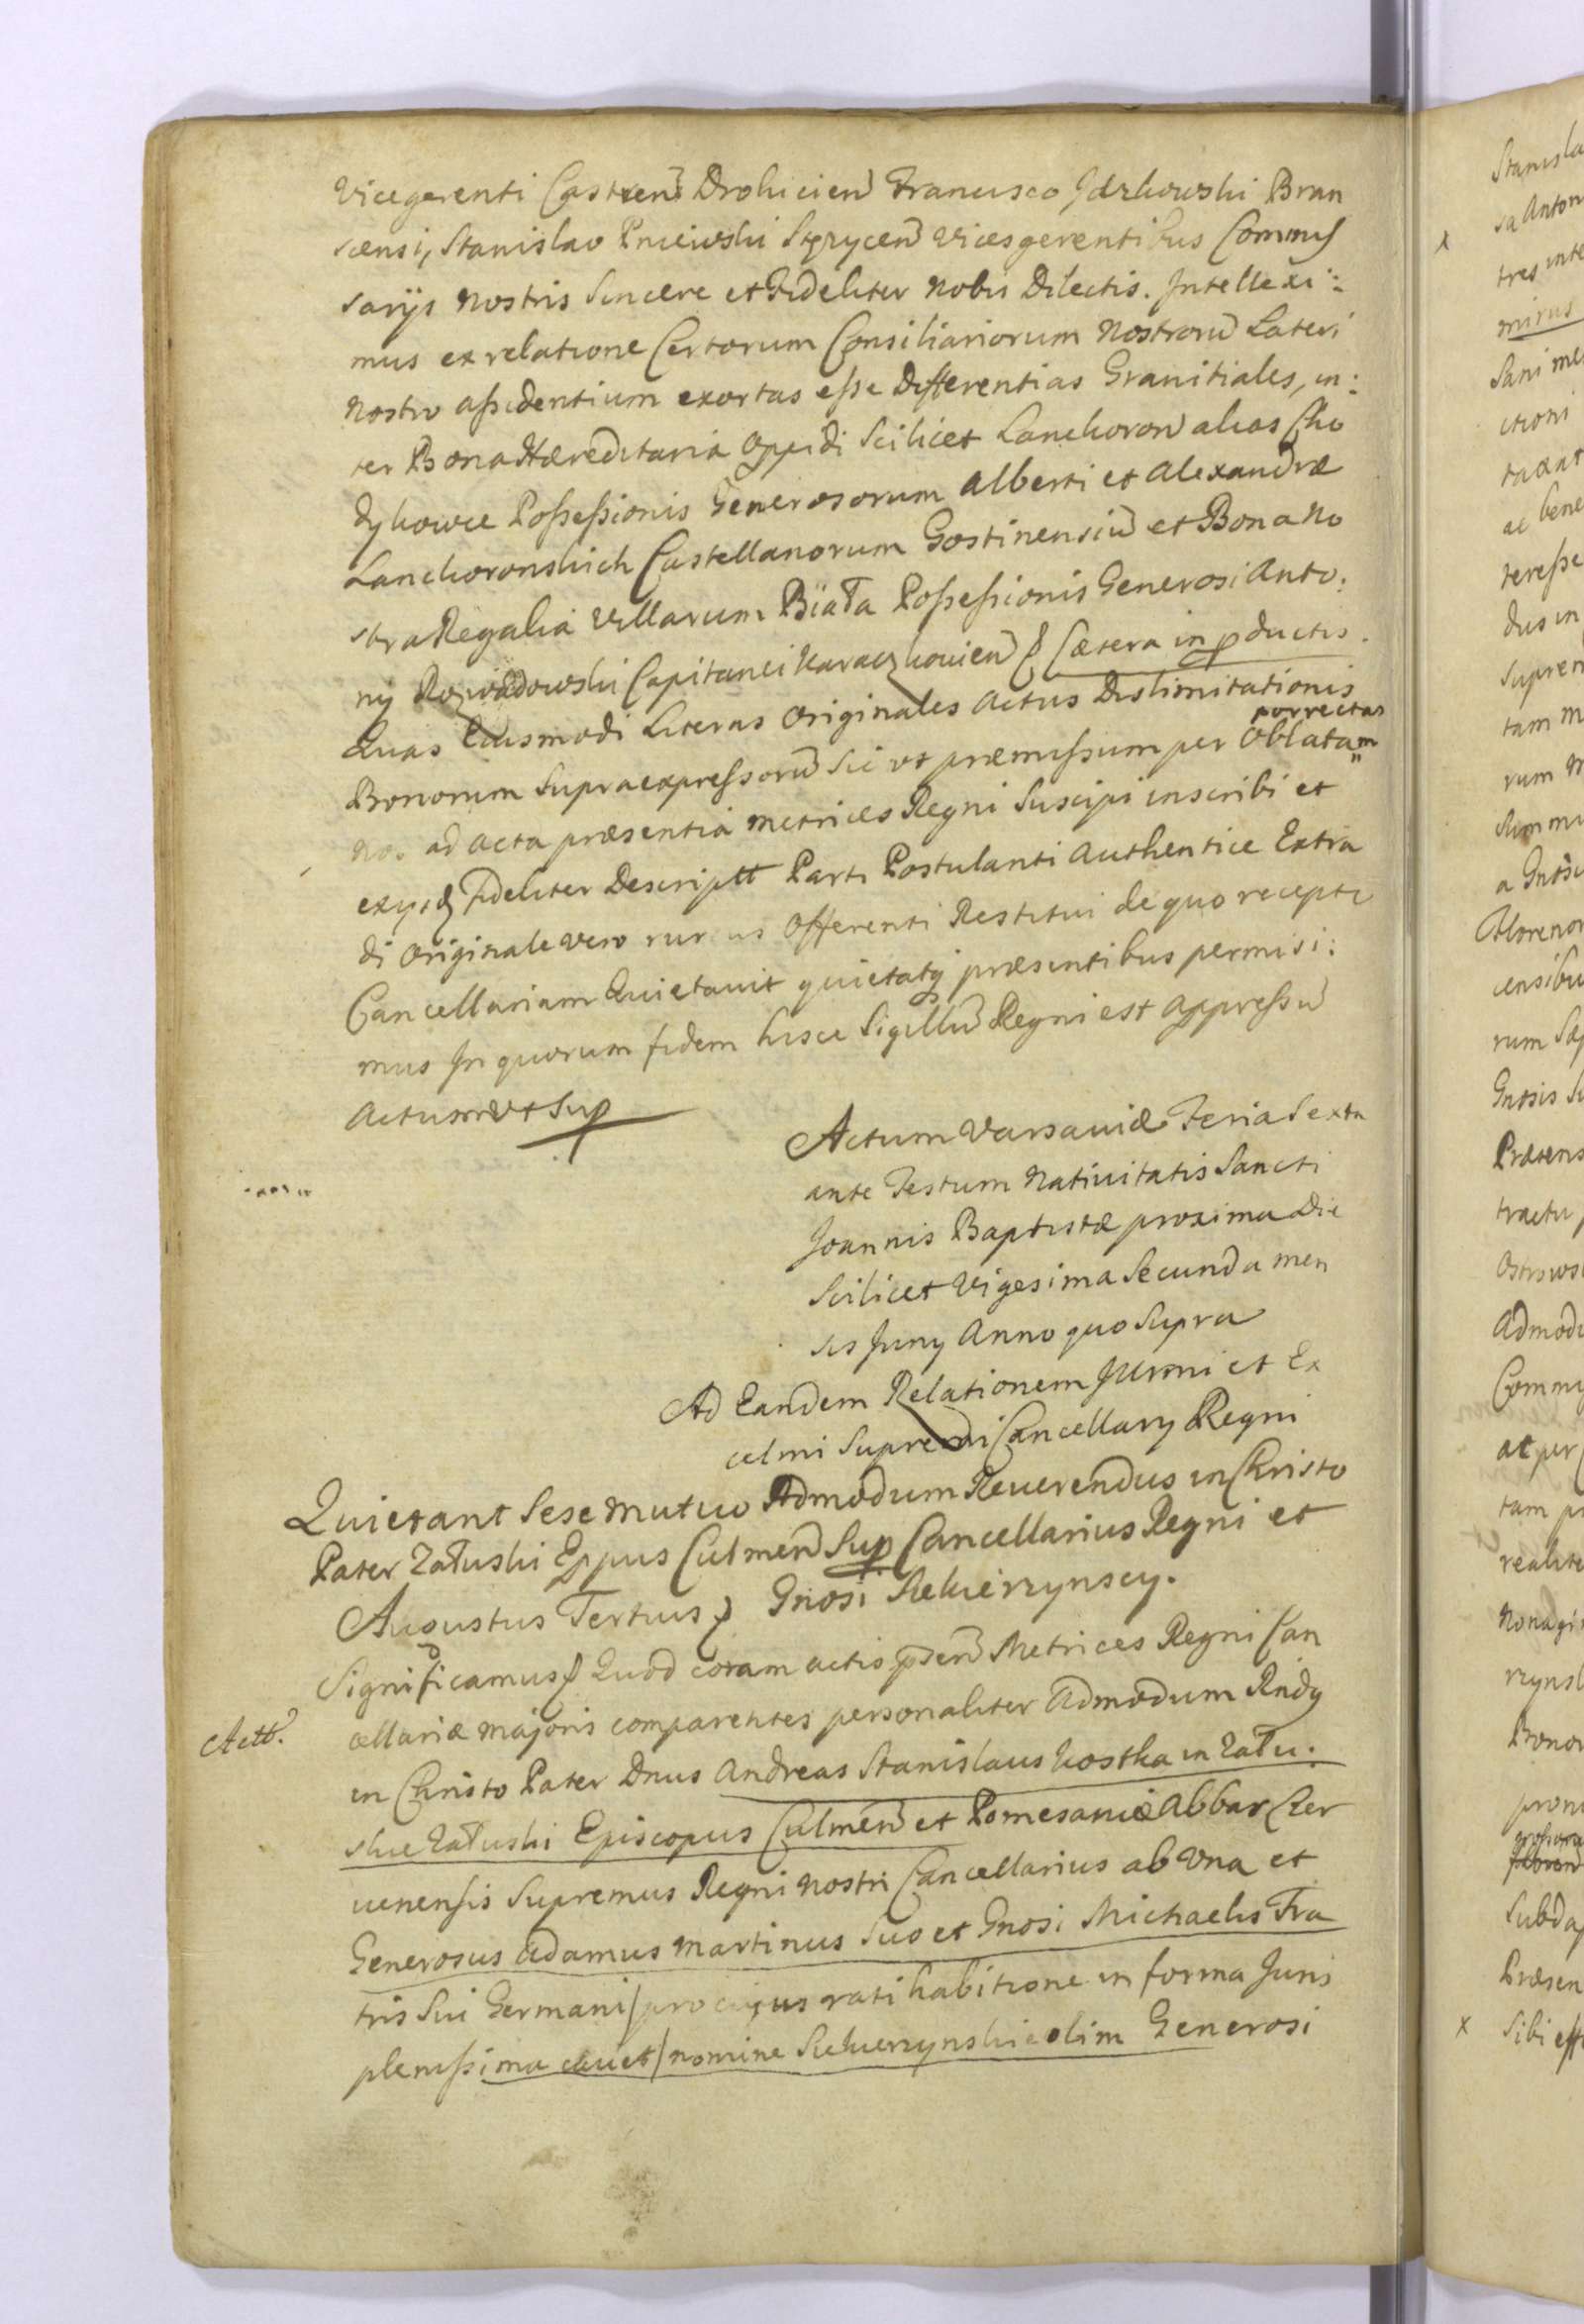 Vicegerenti Castren Drohicien Francisco Jdzkowski Bran
scensi, Stanislao Pniewski Vicesgerentibus Commis
sarijs nostris Sincere et Fideliter Nobis Dilectis. Intellexi:
mus ex relatione Certorum Consiliariorum Nostroru Lateri
nostro assidentium exortas esse Differentias Granitiales, in:
ter Bona Hæreditaria Oppidi Scilicet Lanckoron alias Cho
dykowce Possessionis Generosorum Alberti et Alexandræ
Lanckoronskich Castellanorum Gostinensiu et Bona No
stra Regalia Villarum Biała Possessionis Generosi Anto:
nij Rozwadowski Capitanei Karaczkouien Cætera in productis.
Quas Eiusmodi Literas Originales Actus Dislimitationis
Bonorum Supraexpressoru Sic vt præmissum per Oblatam porrectas
Nos ad Acta præsentia Metrices Regni Suscipi inscribi et
exijsq Fideliter Descriptt Parti Postulanti Authentice Extra
di Originale vero rursus Offerenti Restitui de quo recepto
Cancellariam Quietauit quietatq præsentibus permisi:
mus In quorum fidem hisce Sigillu Regni est appressu
Actum vt Sup
Actum Varsauiæ Feria Sexta
ante Festum Natiuitatis Sancti
Joannis Baptistæ proxima Die
Scilicet Vigesima Secunda men
sis Juny Anno quo Supra
Ad Eandem Relationem Illrmi et Ex
celmi Supremi Cancellary Regni
Quietant Sese mutuo Admodum Reuerendus in Christo
Pater Załuski Eppus Culmen Sup Cancellarius Regni et
Augustus Tertius Gnosi Skwierzynscy.
Significamus Quod coram actis psen Metrices Regni Can
cellariæ Majoris comparentes personaliter Admodum Rndy
Actt.
in Christo Pater Dnus Andreas Stanislaus Kostka in Zału:
skie Załuski Episcopus Culmen et Pomesaniæ Abbas Czer
uenensis Supremus Regni nostri Cancellarius ab Vna et
Generosus Adamus Martinus Suo et Gnosi Michaelis Fra
tris Sui Germani / pro cujus ratihabitione in forma Juris
plenissima cauet / nomine Skwierzynskie olim Generosi